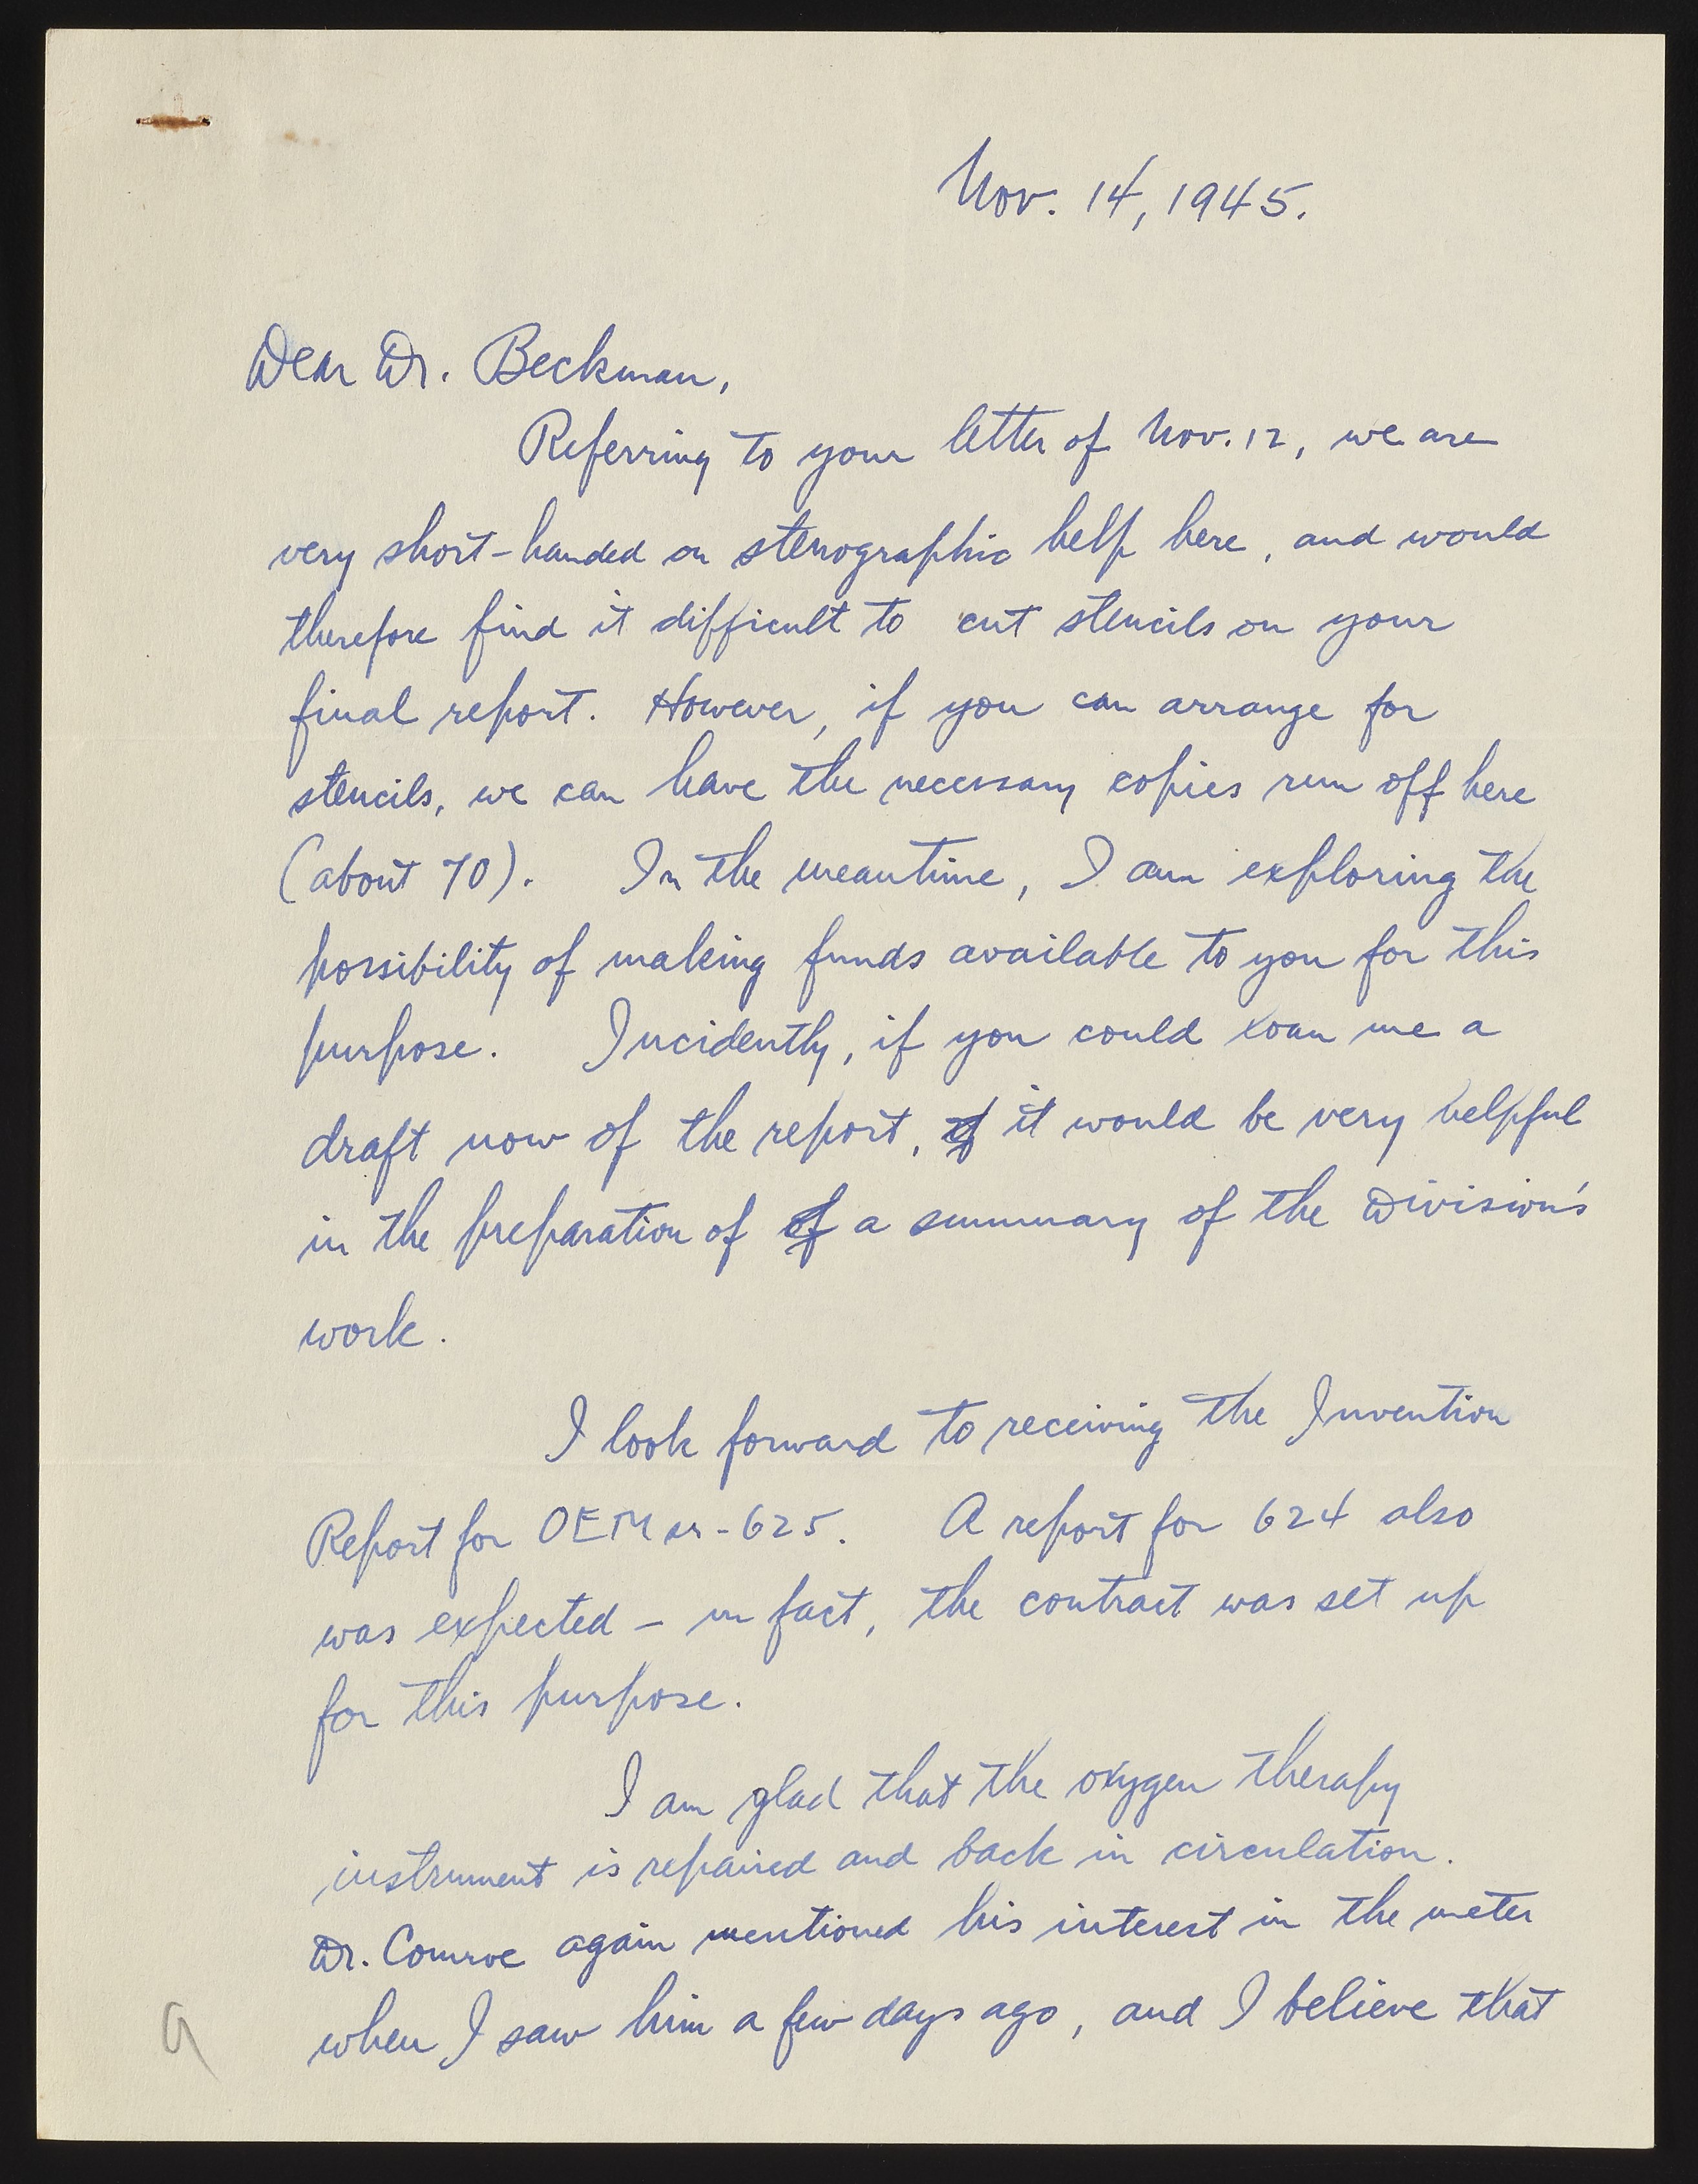 Nov. 14, 1945.
Dear Dr. Beckman,
Referring to your letter of Nov. 12, we are
very short-handed on stenographic help here, and would
therefore find it difficult to cut stencils on your
final report. However, if you can arrange for
stencils, we can have the necessary copies run off here
(about 70). In the meantime, I am exploring the
possibility of making funds available to you for this
purpose. Incidently, if you could loan me a
draft now of the report, it would be very helpful
in the preparation of of a summary of the Division's
work.
I look forward to receiving the Invention
Report for OEMsr-625. A report for 624 also
was expected - in fact, the contract was set up
for this purpose.
I am glad that the oxygen therapy
instrument is repaired and back in circulation.
Dr. Comroe again mentioned his interest in the meter
when I saw him a few days ago, and I believe that